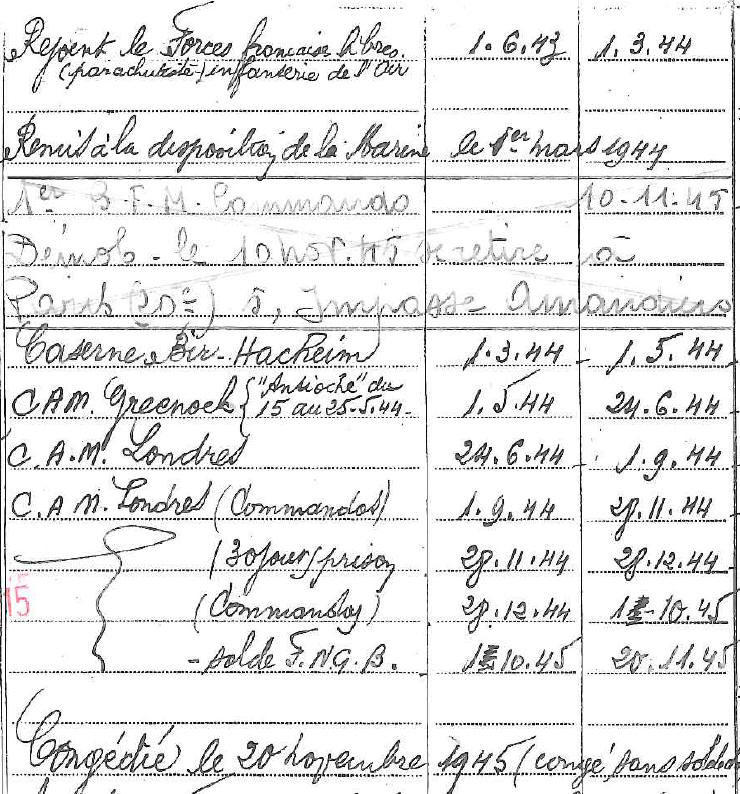 Rejoint le Forces francaise libres. 1.6.43 1.3.44
(parachutiste) infanterie de l'Air
Remis à la disposition de la Marine le 1er mars 1944
1er B.F.M. Commando 10-11-45
Démob. le 10 nov. 45 se retire à
Paris (20e) 5, Impasse Amandiers
Caserne Bir-Hacheim 1.3.44 - 1.5.44
CAM. Greenock { "Antioche" du 1.5.44 24.6.44
15 au 25-5-44-
C.A.M. Londres 24.6.44 - 1.9.44
C.A.M. Londres (Commandos) 1.9.44 28.11.44
(30 jours) prison 28.11.44 28.12.44
15 (Commandos) 28.12.44 10.45
- solde F.N.G.B. 10.45 20.11.45
Congédié le 20 novembre 1945 (congé sans solde